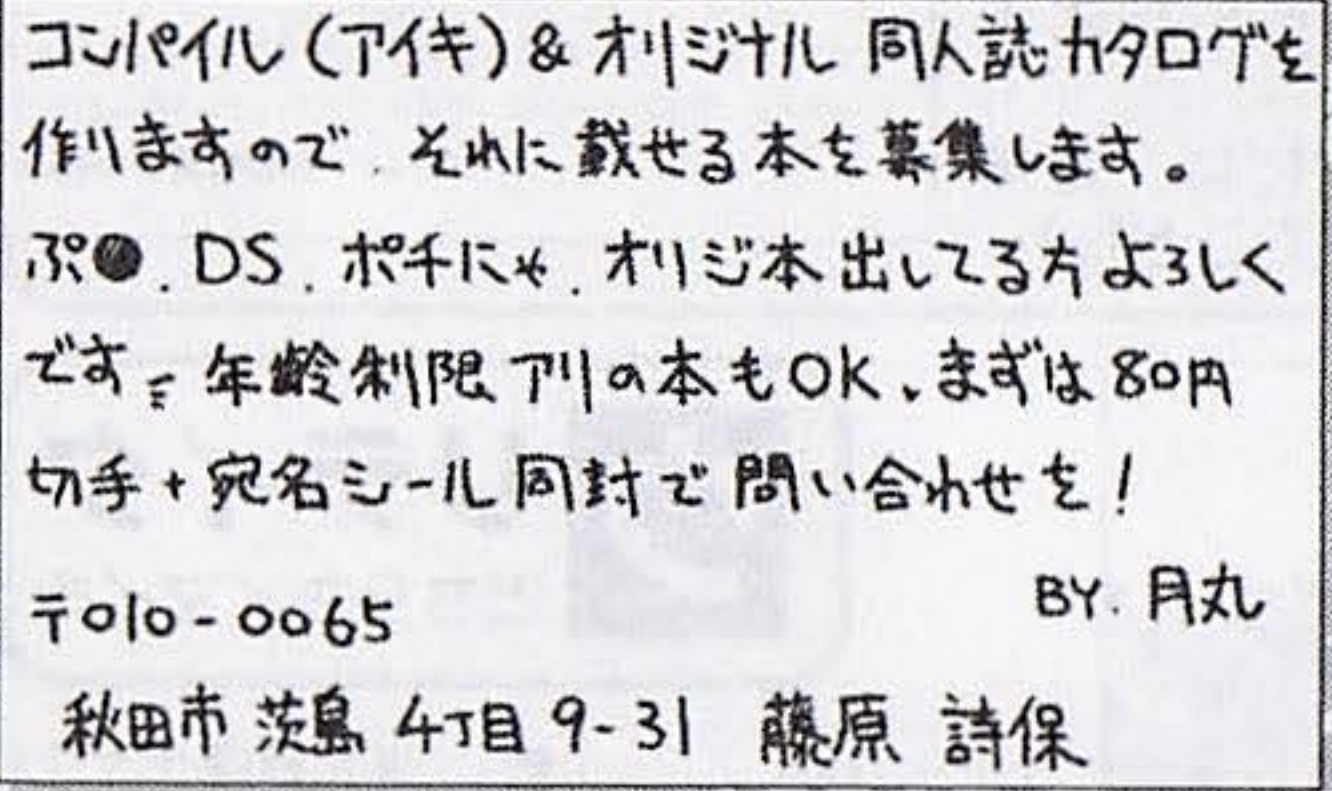 コンパイル(アイキ)&オリジナル 同人誌カタログを
作りますので、それに載せる本を募集します。
ぷ●、DS、ポチにゃ、オリジ本出してる方よろしく
です 年齢制限アリの本もOK、まずは80円
切手+宛名シール同封で問い合わせを!
BY.月丸
〒010-0065
秋田市茨島4丁目9-31 藤原 詩保